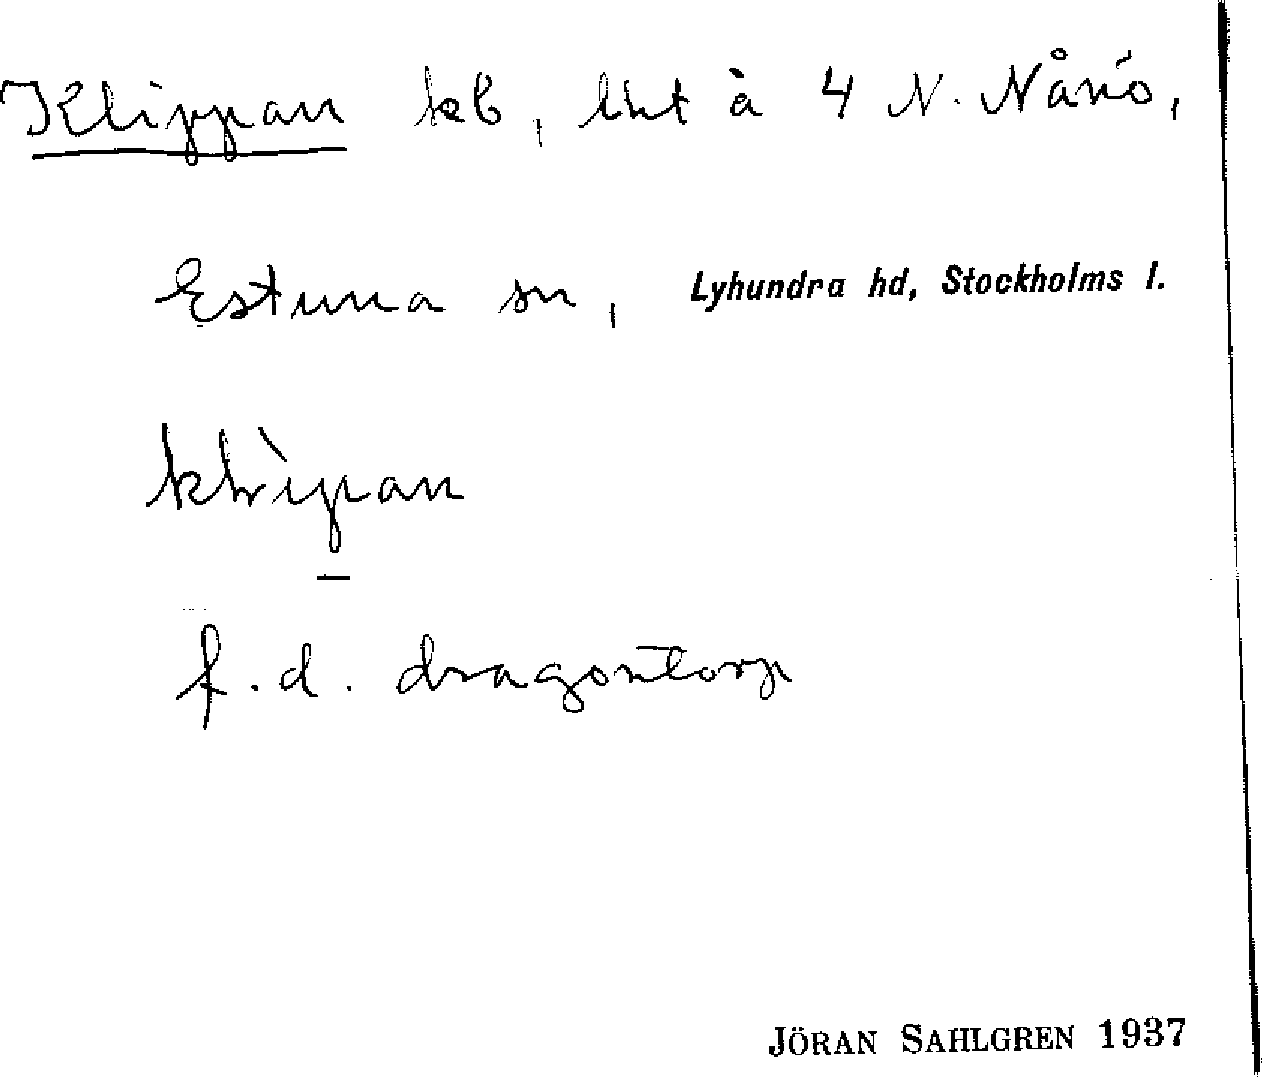 Klippan kb, lht à 4 N. Nånö,
Estuna sn, Lyhundra hd, Stockholms l.
klìpan
f.d. dragontorp
JÖRAN SAHLGREN 1937